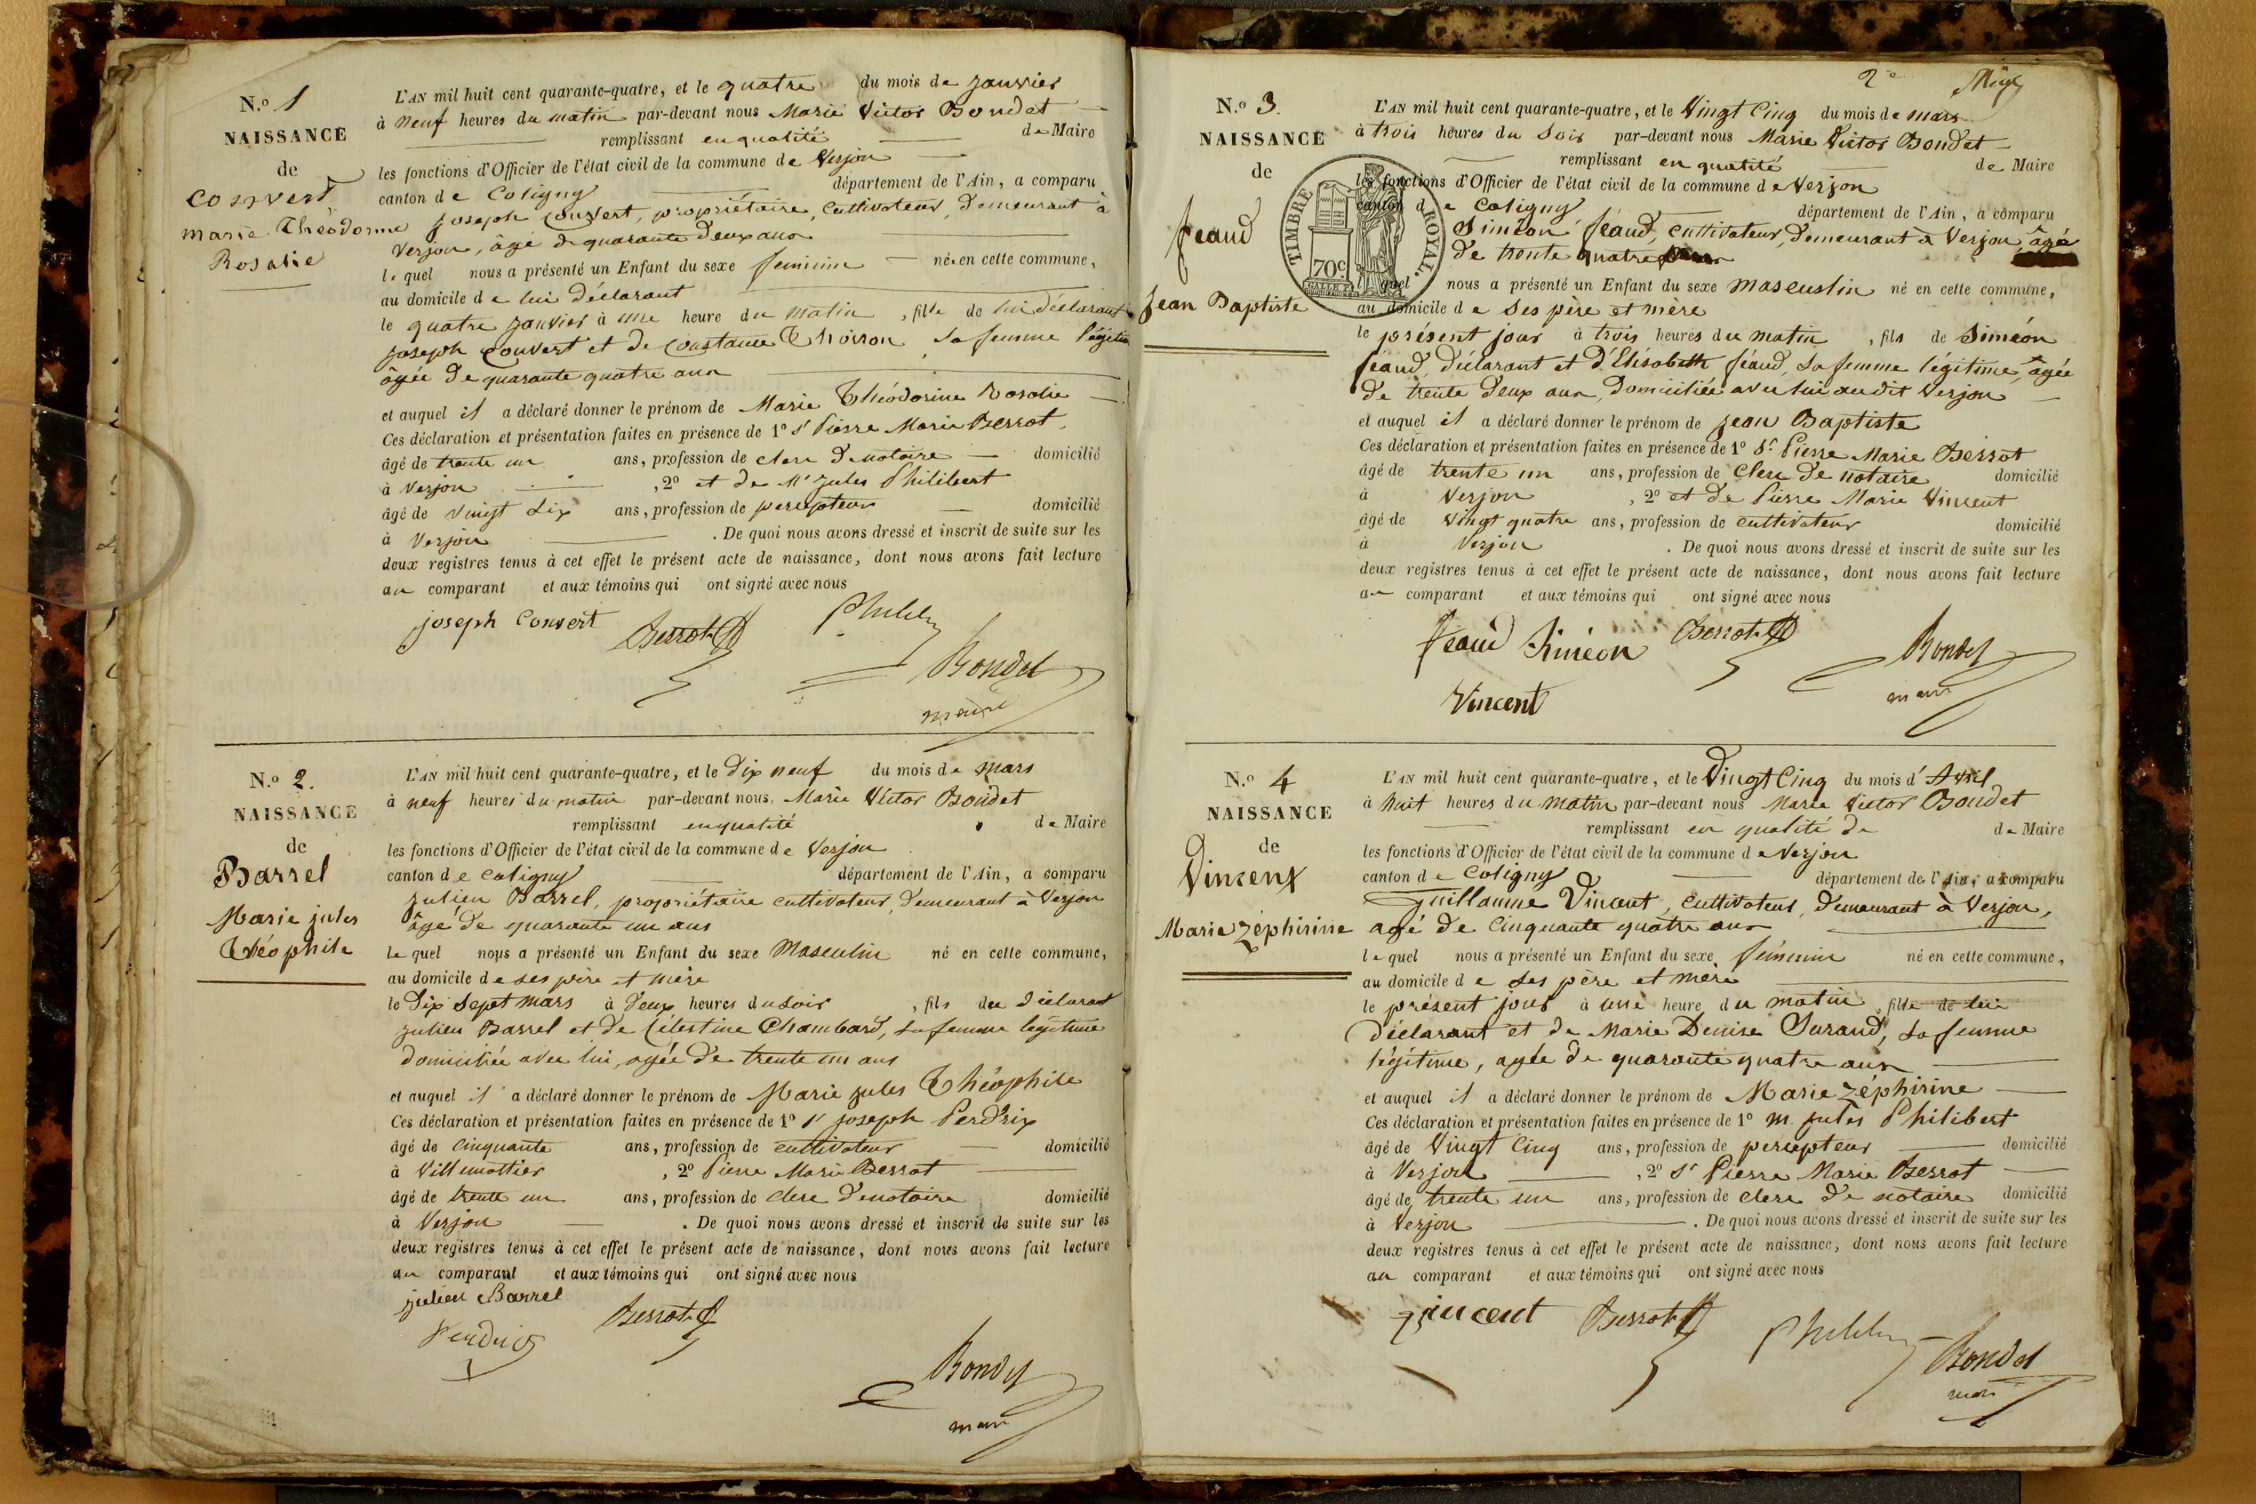 N.o 1
NAISSANCE
de
Convert
Marie Théodorine
Rosalie
L'AN mil huit cent quarante-quatre, et le quatre du mois de janvier
à neuf heures du matin par-devant nous Marie Victor Bondet
remplissant en qualité de Maire
les fonctions d'Officier de l'état civil de la commune de Verjon
canton de Coligny département de l'Ain, a comparu
joseph Convert, propriétaire, cultivateur, demeurant à
Verjon, âgé de quarante deux ans
lequel nous a présenté un Enfant du sexe feminin née en cette commune,
au domicile de lui déclarant
le quatre janvier à une heure du matin, fille de lui déclarant
joseph Convert et de Constance Thoiron, sa femme légitime
âgée de quarante quatre ans
et auquel il a déclaré donner le prénom de Marie Théodorine Rosalie
Ces déclaration et présentation faites en présence de 1o Sr Pierre Marie Berrot,
âgé de trente un ans, profession de clerc de notaire domicilié
à Verjon, 2o et de Mr jules Philibert
âgé de vingt six ans, profession de percepteur domicilié
à Verjon. De quoi nous avons dressé et inscrit de suite sur les
deux registres tenus à cet effet le présent acte de naissance, dont nous avons fait lecture
au comparant et aux témoins qui ont signé avec nous
joseph Convert Berrot Philibert
Bondet
maire
N.o 2.
NAISSANCE
de
Barrel
Marie jules
Théophile
L'AN mil huit cent quarante-quatre, et le dix neuf du mois de mars
à neuf heures du matin par-devant nous, Marie Victor Bondet
remplissant en qualité de Maire
les fonctions d'Officier de l'état civil de la commune de Verjon
canton de Coligny département de l'Ain, a comparu
julien Barrel, propriétaire cultivateur, demeurant à Verjon
âgé de quarante un ans
lequel nous a présenté un Enfant du sexe Masculin né en cette commune,
au domicile de ses père et mère
le dix sept mars à deux heures du soir, fils du déclarant
julien Barrel et de Célestine Chambard, sa femme légitime
domiciliée avec lui, agée de trente un ans
et auquel il a déclaré donner le prénom de Marie jules Théophile
Ces déclaration et présentation faites en présence de 1o Sr joseph Perdrix
âgé de cinquante ans, profession de cultivateur domicilié
à Villemottier, 2o Pierre Marie Berrot
âgé de trente un ans, profession de clerc de notaire domicilié
à Verjon. De quoi nous avons dressé et inscrit de suite sur les
deux registres tenus à cet effet le présent acte de naissance, dont nous avons fait lecture
au comparant et aux témoins qui ont signé avec nous
julien Barrel Berrot
Perdrix
Bondet
maire
2e
N.o 3.
NAISSANCE
de
féaud
Jean Baptiste
TIMBRE ROYAL.
70c
L'AN mil huit cent quarante-quatre, et le Vingt Cinq du mois de mars
à trois heures du soir par-devant nous Marie Victor Bondet
remplissant en qualité de Maire
les fonctions d'Officier de l'état civil de la commune de Verjon
canton de Coligny département de l'Ain, a comparu
Siméon féaud, cultivateur, demeurant à Verjon, âgé
de trente quatre
lequel nous a présenté un Enfant du sexe masculin né en cette commune,
au domicile de ses père et mère
le présent jour à trois heures du matin, fils de Siméon
féaud, déclarant et d'Elisabeth féaud, sa femme légitime, âgée
de trente deux ans, domiciliée avec lui audit Verjon
et auquel il a déclaré donner le prénom de jean Baptiste
Ces déclaration et présentation faites en présence de 1o Sr Pierre Marie Berrot
âgé de trente un ans, profession de clerc de notaire domicilié
à Verjon, 2o et de Pierre Marie Vincent
âgé de vingt quatre ans, profession de cultivateur domicilié
à Verjon. De quoi nous avons dressé et inscrit de suite sur les
deux registres tenus à cet effet le présent acte de naissance, dont nous avons fait lecture
au comparant et aux témoins qui ont signé avec nous
feaud Siméon Berrot
Bondet
maire
Vincent
N.o 4
NAISSANCE
de
Vincent
Marie Zéphirine
L'AN mil huit cent quarante-quatre, et le Vingt Cinq du mois d'Avril
à huit heures du matin par-devant nous Marie Victor Bondet
remplissant en qualité de de Maire
les fonctions d'Officier de l'état civil de la commune de Verjon
canton de Coligny département de l'Ain, a comparu
Guillaume Vincent, cultivateur, demeurant à Verjon,
agé de cinquante quatre ans
lequel nous a présenté un Enfant du sexe féminin né en cette commune,
au domicile de ses père et mère
le présent jour à une heure du matin, fille de lui
déclarant et de Marie Denise Surand, sa femme
légitime, agée de quarante quatre ans
et auquel il a déclaré donner le prénom de Marie Zéphirine
Ces déclaration et présentation faites en présence de 1o M. jules Philibert
âgé de Vingt Cinq ans, profession de percepteur domicilié
à Verjon, 2o Sr Pierre Marie Berrot
âgé de trente un ans, profession de clerc de notaire domicilié
à Verjon. De quoi nous avons dressé et inscrit de suite sur les
deux registres tenus à cet effet le présent acte de naissance, dont nous avons fait lecture
au comparant et aux témoins qui ont signé avec nous
vincent Berrot Philibert Bondet
maire